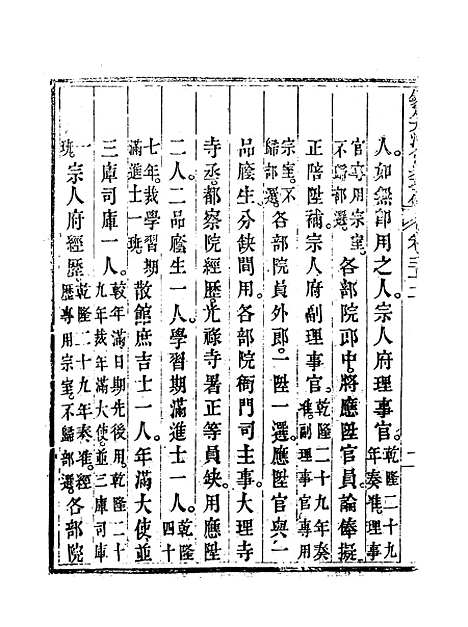 人如無即用之人宗人府理事官。乾隆二十九年奏准理事
官專用宗室。不歸部選。各部院郎中。將應陞官員論俸擬
正陪陞補宗人府副理事官。乾隆二十九年奏准。副理事官專用
宗室。不歸部選。各部院員外郎。一陞一選。應陞官與一
品廕生分缺間用。各部院衙門司主事。大理寺
寺丞。都察院經歷。光祿寺署正等員缺。用應陞
二人。二品廕生一人。學習期滿進士一人。乾隆四十
七年裁學習期滿進士一班。散館庶吉士一人。年滿大使並
三庫司庫一人。較年滿日期先後用。乾隆二十九年裁年滿大使。並三庫司庫
一班。宗人府經歷。乾隆二十九年奏准。經歷專用宗室。不歸部選。各部院